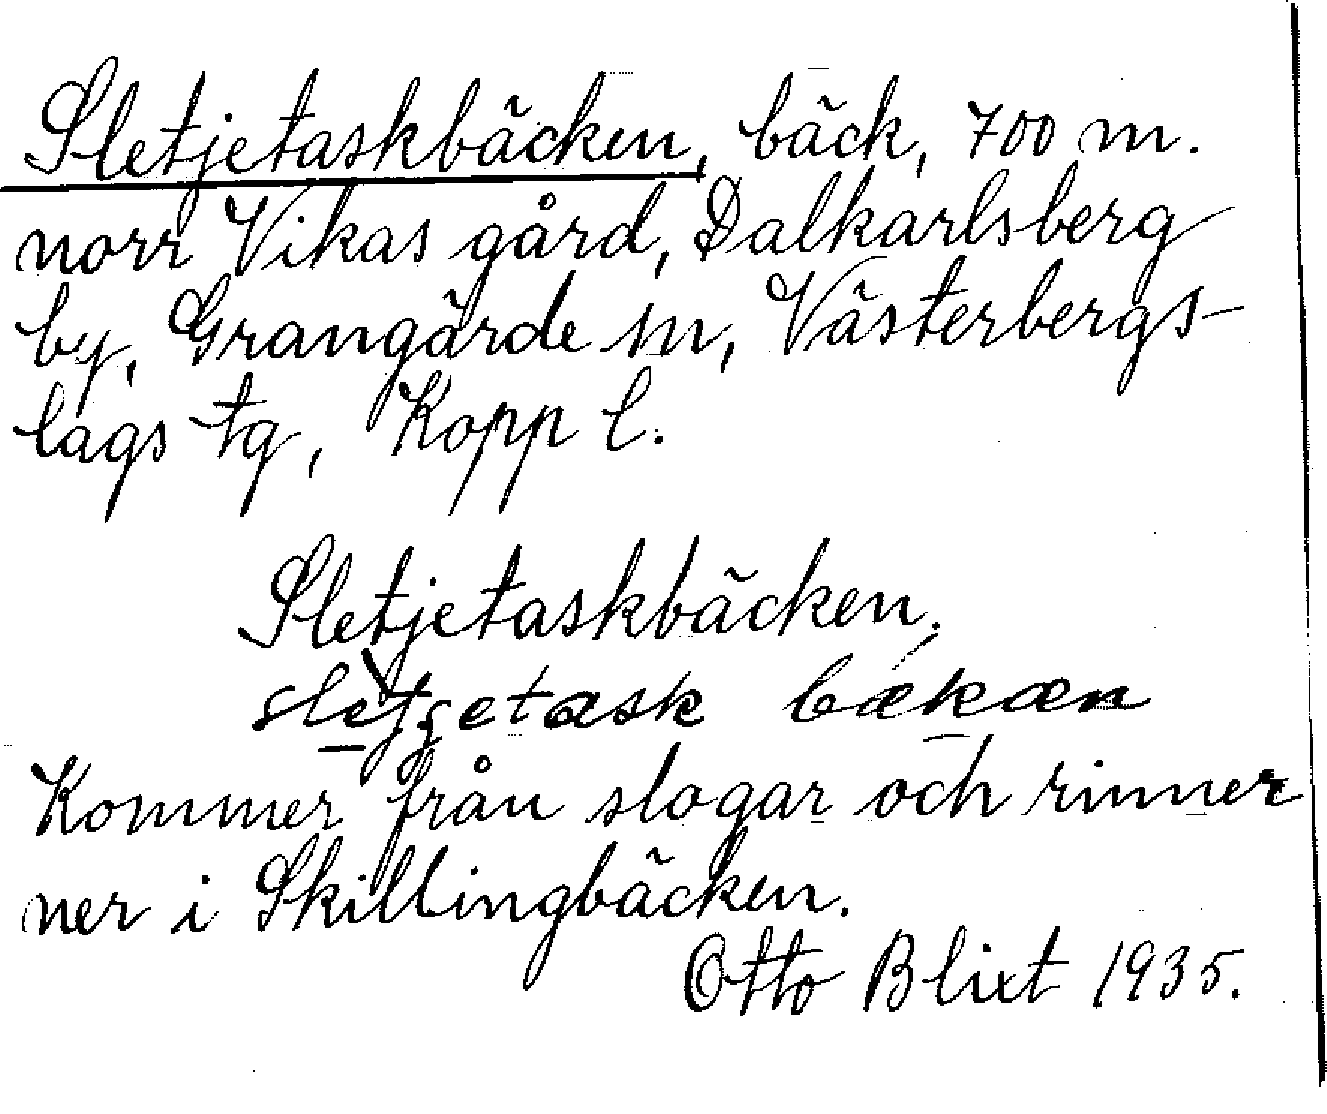 Sletjetaskbäcken, bäck, 700 m.
norr Vikas gård, Dalkarlsberg
by, Grangärde sn, Västerbergs-
lags tg, Kopp l.
Sletjetaskbäcken.
bækæn
Kommer från slogar och rinner
ner i Skillingbäcken.
Otto Blixt 1935.